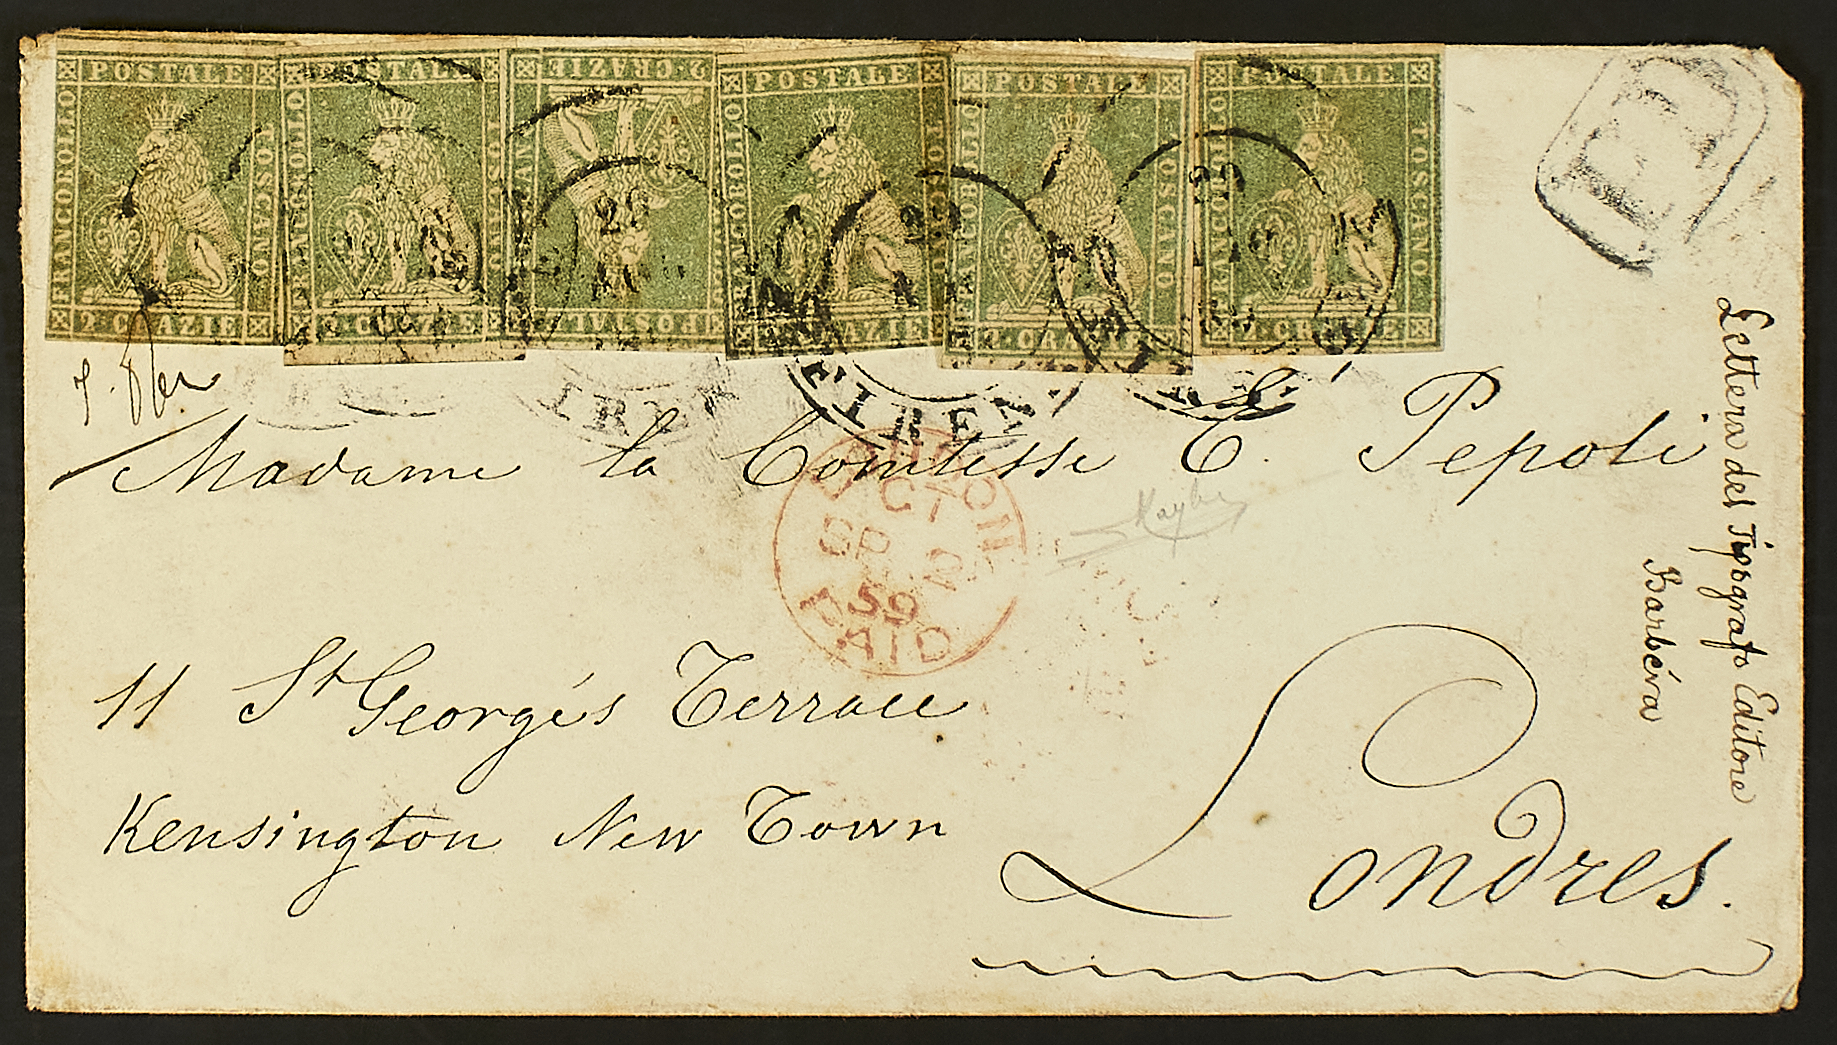 FRANCOBOLLO POSTALE TOSCANO 2·CRAZIE
FRANCOBOLLO POSTALE TOSCANO 2·CRAZIE
FRANCOBOLLO POSTALE TOSCANO 2·CRAZIE
FRANCOBOLLO POSTALE TOSCANO 2·CRAZIE
FRANCOBOLLO POSTALE TOSCANO 2·CRAZIE
FRANCOBOLLO POSTALE TOSCANO 2·CRAZIE
29
29
29
FIRENZE
PD
Madame la Comtesse C. Pepoli
LONDON
CT
SP 2
59
PAID
11 St George's Terrace
Kensington New Town
Londres.
Lettera del Tipografo Editore
Barbéra